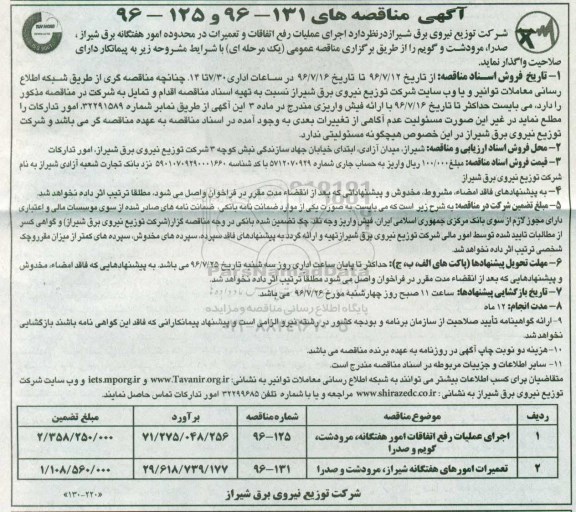 آگهی مناقصه های ۱۳۱-۹۶ و ۱۲۵-۹۶
شرکت توزیع نیروی برق شیراز در نظر دارد اجرای عملیات رفع اتفاقات و تعمیرات در محدوده امور هفتگانه برق شیراز،
صدرا، مرودشت و گویم را از طریق برگزاری مناقصه عمومی (یک مرحله ای) با شرایط مشروحه زیر به پیمانکار دارای
صلاحیت واگذار نماید.
۱- تاریخ فروش اسناد مناقصه: از تاریخ ۹۶/۷/۱۲ تا تاریخ ۹۶/۷/۱۶ در ساعات اداری ۷/۳۰ تا ۱۲. چنانچه مناقصه گری از طریق شبکه اطلاع
رسانی معاملات توانیر و یا وب سایت شرکت توزیع نیروی برق شیراز نسبت به تهیه اسناد مناقصه اقدام و تمایل به شرکت در مناقصه مذکور
را دارد، می بایست حداکثر تا تاریخ ۹۶/۷/۱۶ با ارائه فیش واریزی مندرج در ماده ۳ این آگهی از طریق نمابر شماره ۳۲۲۹۱۵۸۹ امور تدارکات را
مطلع نماید در غیر این صورت مسئولیت عدم آگاهی از تغییرات بعدی به وجود آمده در اسناد مناقصه به عهده مناقصه گر می باشد و شرکت
توزیع نیروی برق شیراز در این خصوص هیچگونه مسئولیتی ندارد.
۲- محل فروش اسناد ارزیابی و مناقصه: شیراز، میدان آزادی، ابتدای خیابان جهاد سازندگی نبش کوچه ۳ شرکت توزیع نیروی برق شیراز، امور تدارکات
۳- قیمت فروش اسناد مناقصه: مبلغ ۱۰۰/۰۰۰ ریال واریز به حساب جاری شماره ۵۷۱۲۰۷۰۹۲۹ با کد شناسه ۵۹۰۱۰۷۰۹۲۹۰۰۰۱۶۶۰ نزد بانک تجارت شعبه آزادی شیراز به نام
شرکت توزیع نیروی برق شیراز
۴- به پیشنهادهای فاقد امضاء، مشروط، مخدوش و پیشنهاداتی که بعد از انقضاء مدت مقرر در فراخوان واصل می شود، مطلقا ترتیب اثر داده نخواهد شد.
۵- مبلغ تضمین شرکت در مناقصه: به شرح زیر است که می بایست به صورت یکی از موارد ضمانت نامه بانکی، ضمانت نامه های صادر شده از سوی موسسات مالی و اعتباری
دارای مجوز لازم از سوی بانک مرکزی جمهوری اسلامی ایران، فیش واریز وجه نقد، چک تضمین شده بانکی در وجه مناقصه گزار (شرکت توزیع نیروی برق شیراز) و گواهی کسر
از مطالبات تایید شده توسط امور مالی شرکت توزیع نیروی برق شیراز تهیه و ارائه گردد. به پیشنهادهای فاقد سپرده، سپرده های مخدوش، سپرده های کمتر از میزان مقرر و چک
شخصی ترتیب اثر داده نخواهد شد.
۶- مهلت تحویل پیشنهادها (پاکت های الف، ب، ج): حداکثر تا پایان ساعت اداری روز سه شنبه تاریخ ۹۶/۷/۲۵ می باشد. به پیشنهادهایی که فاقد امضاء، مخدوش
و پیشنهادهایی که بعد از انقضاء مدت مقرر در فراخوان واصل می شود مطلقا ترتیب اثر داده نخواهد شد.
۷- تاریخ بازگشایی پیشنهادها: ساعت ۱۱ صبح روز چهارشنبه مورخ ۹۶/۷/۲۶ می باشد.
۸- مدت انجام: ۱۲ ماه
۹- ارائه گواهینامه تأیید صلاحیت از سازمان برنامه و بودجه کشور در رشته نیرو الزامی است و پیشنهاد پیمانکارانی که فاقد این گواهی نامه باشند بازگشایی
نخواهد شد.
۱۰- هزینه دو نوبت چاپ آگهی در روزنامه به عهده برنده مناقصه می باشد.
۱۱- سایر اطلاعات و جزییات مربوطه در اسناد مناقصه مندرج است.
متقاضیان برای کسب اطلاعات بیشتر می توانند به شبکه اطلاع رسانی معاملات توانیر به نشانی: www.Tavanir.org.ir و iets.mporg.ir و وب سایت شرکت
توزیع نیروی برق شیراز به نشانی: www.shirazedc.co.ir مراجعه و یا با شماره تلفن ۳۲۲۹۹۶۸۵ امور تدارکات تماس حاصل نمایند.
ردیف موضوع مناقصه شماره مناقصه برآورد مبلغ تضمین
۱ اجرای عملیات رفع اتفاقات امور هفتگانه، مرودشت، گویم و صدرا ۱۲۵-۹۶ ۷۱/۲۷۵/۰۴۸/۲۵۶ ۲/۳۵۸/۲۵۰/۰۰۰
۲ تعمیرات امورهای هفتگانه شیراز، مرودشت و صدرا ۱۳۱-۹۶ ۲۹/۶۱۸/۷۳۹/۱۷۷ ۱/۱۰۸/۵۶۰/۰۰۰
شرکت توزیع نیروی برق شیراز
«۱۳۰-۲۲۰»